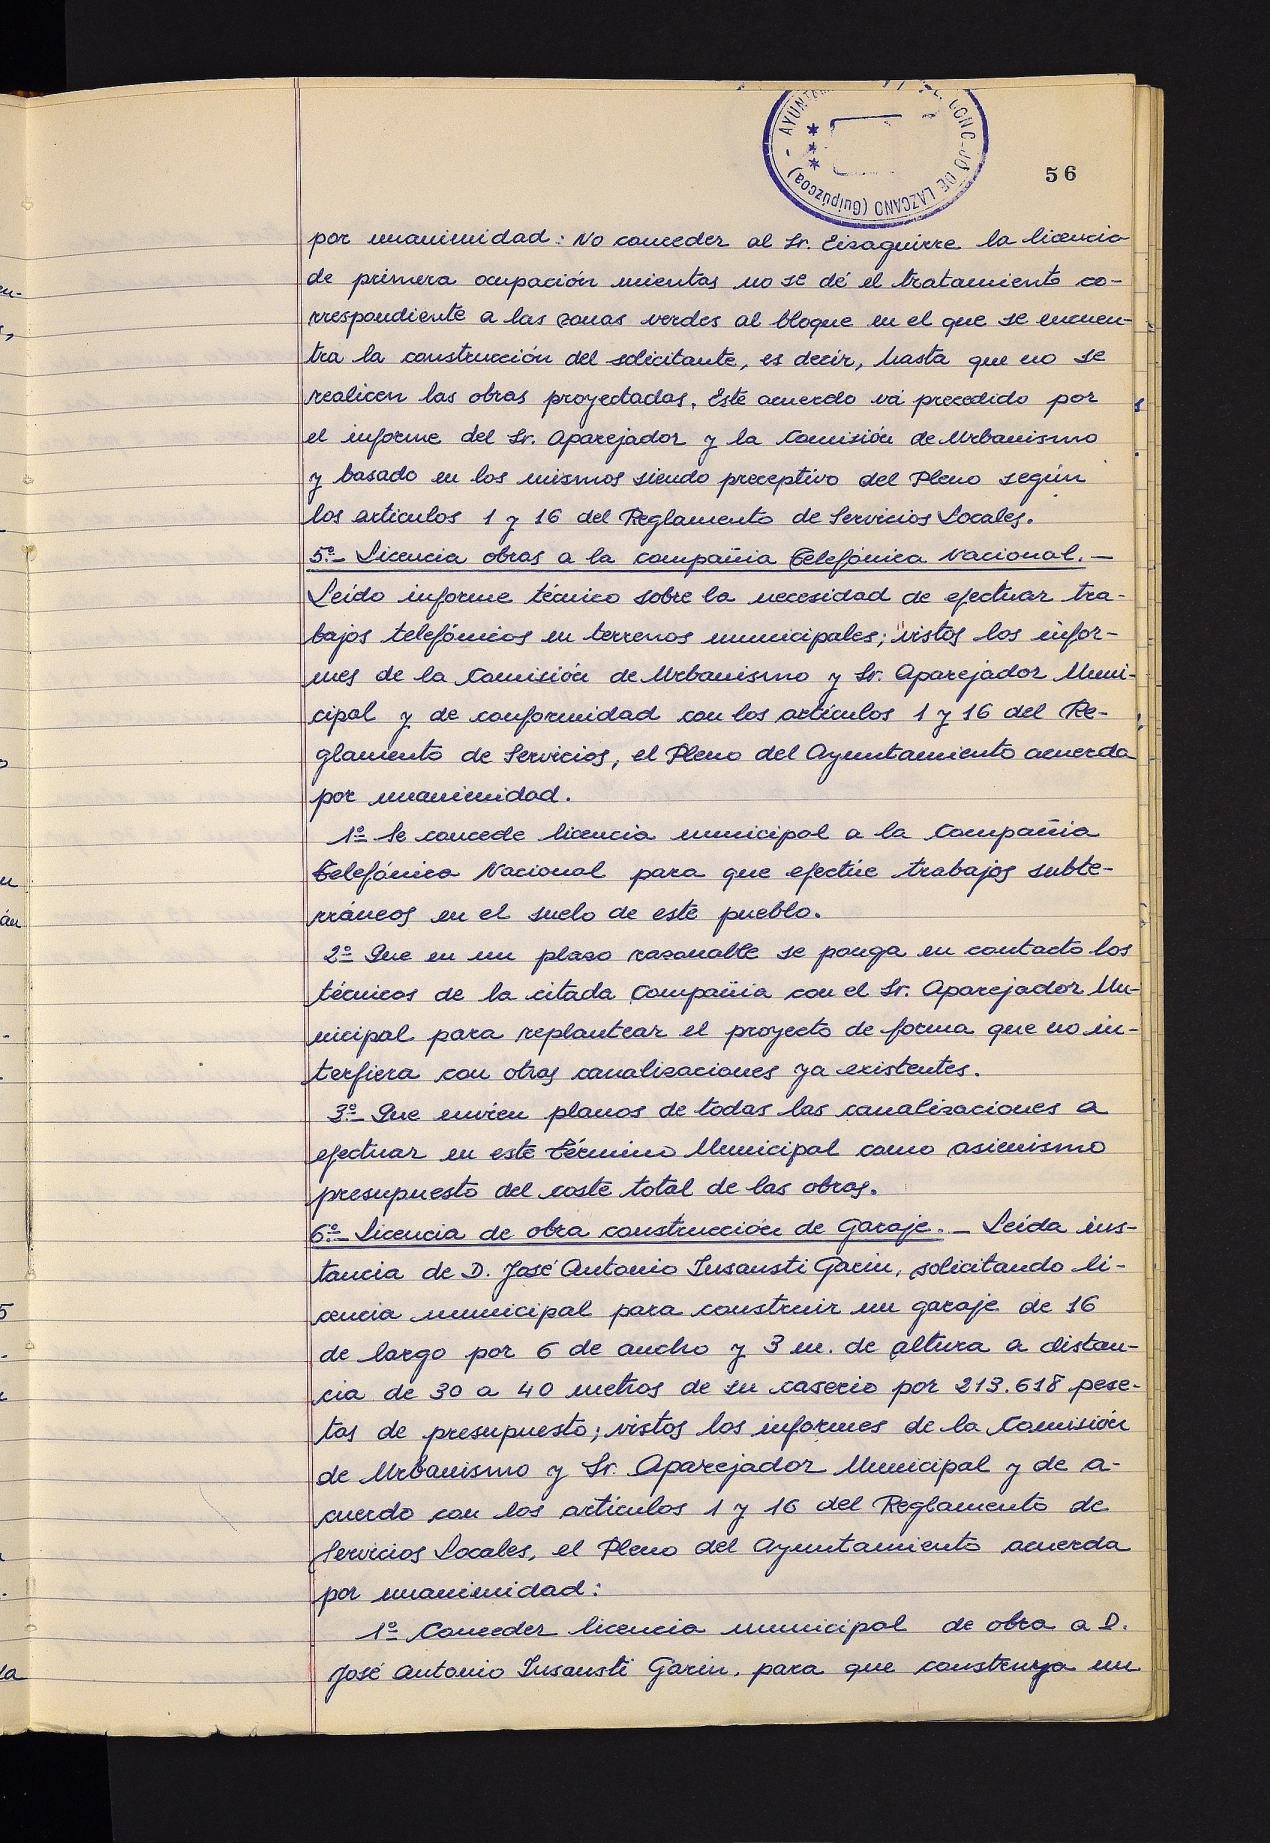 56
por unanimidad: No conceder al Sr. Eizaguirre la licencia
de primera ocupación mientas no se dé el tratamiento co-
rrespondiente a las zonas verdes al bloque en el que se encuen-
tra la construcción del solicitante, es decir, hasta que no se
realicen las obras proyectadas. Este acuerdo vá precedido por
el informe del Sr. Aparejador y la Comisión de Urbanismo
y basado en los mismos siendo preceptivo del Pleno según
los artículos 1 y 16 del Reglamento de Servicios Locales.
5º- Licencia obras a la compañia Telefónica Nacional.-
Leído informe técnico sobre la necesidad de efectuar tra-
bajos telefónicos en terrenos municipales; vistos los infor-
mes de la Comisión de Urbanismo y Sr. Aparejador Muni-
cipal y de conformidad con los artículos 1 y 16 del Re-
glamento de Servicios, el Pleno del Ayuntamiento acuerda
por unanimidad.
1º- Se concede licencia municipal a la Compañia
Telefónica Nacional para que efectúe trabajos subte-
rráneos en el suelo de este pueblo.
2º- Que en un plazo razonable se ponga en contacto los
técnicos de la citada Compañia con el Sr. Aparejador Mu-
nicipal para replantear el proyecto de forma que no in-
terfiera con otras canalizaciones ya existentes.
3º- Que envíen planos de todas las canalizaciones a
efectuar en este Término Municipal como asimismo
presupuesto del coste total de las obras.
6º- Licencia de obra construcción de Garaje.- Leída ins-
tancia de D. José Antonio Insausti Garin, solicitando li-
cencia municipal para construir un garaje de 16
de largo por 6 de ancho y 3 m. de altura a distan-
cia de 30 a 40 metros de su caserio por 213.618 pese-
tas de presupuesto; vistos los informes de la Comisión
de Urbanismo y Sr. Aparejador Municipal y de a-
cuerdo con los artículos 1 y 16 del Reglamento de
Servicios Locales, el Pleno del Ayuntamiento acuerda
por unanimidad:
1º- Conceder licencia municipal de obra a D.
José Antonio Insausti Garin, para que construya un